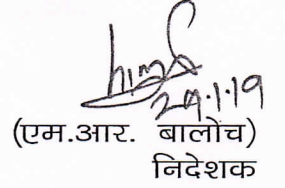 24.1.19
(एम.आर. बालोंच)
निदेशक